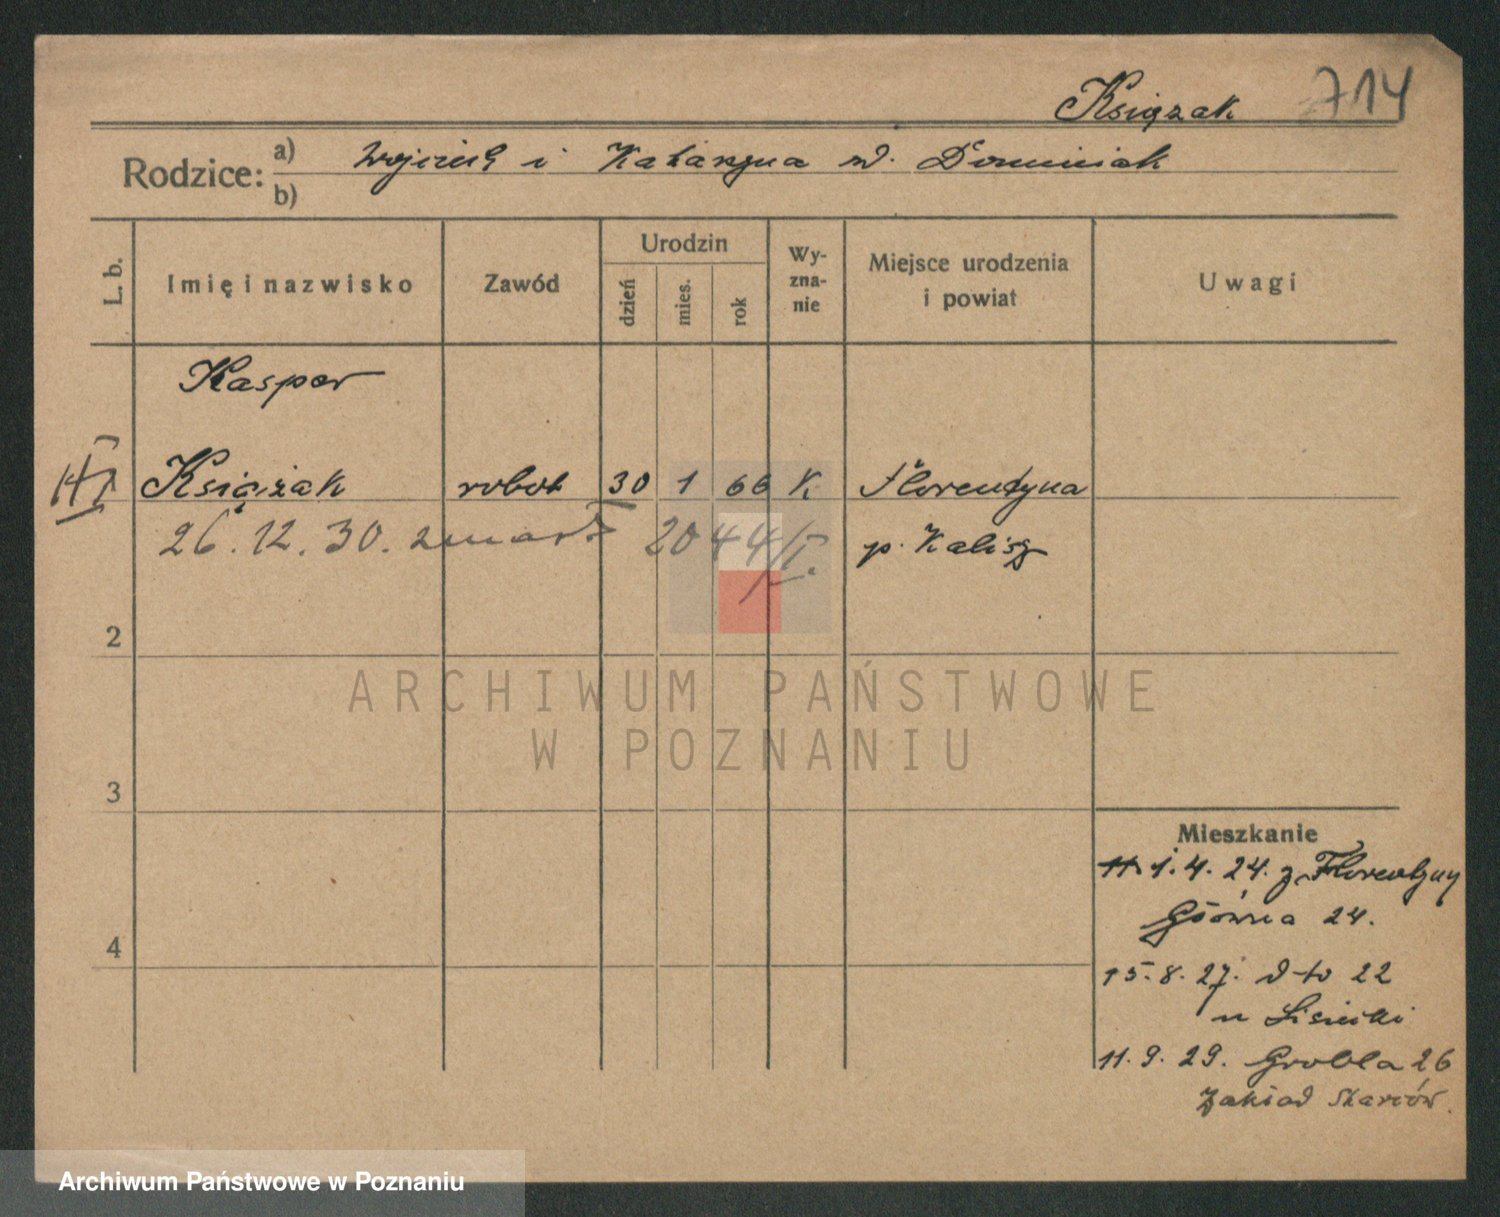 Książak 714
Rodzice: a) Wojciech i Katarzyna ur. Dominiak
b)
L. b. Imię i nazwisko Zawód Urodzin dzień mies. rok Wyznanie Miejsce urodzenia i powiat Uwagi
Kasper
Książak robot 30 1 66 K Florentyna
26. 12. 30. zmarł 2044/I. p. Kalisz
2
3
4
Mieszkanie
1.4.24. z Florentyny
Główna 24.
15.8.27. dto 22
u Lisiecki
11.9.29. Grobla 26
Zakład starców.
ARCHIWUM PAŃSTWOWE
W POZNANIU
Archiwum Państwowe w Poznaniu